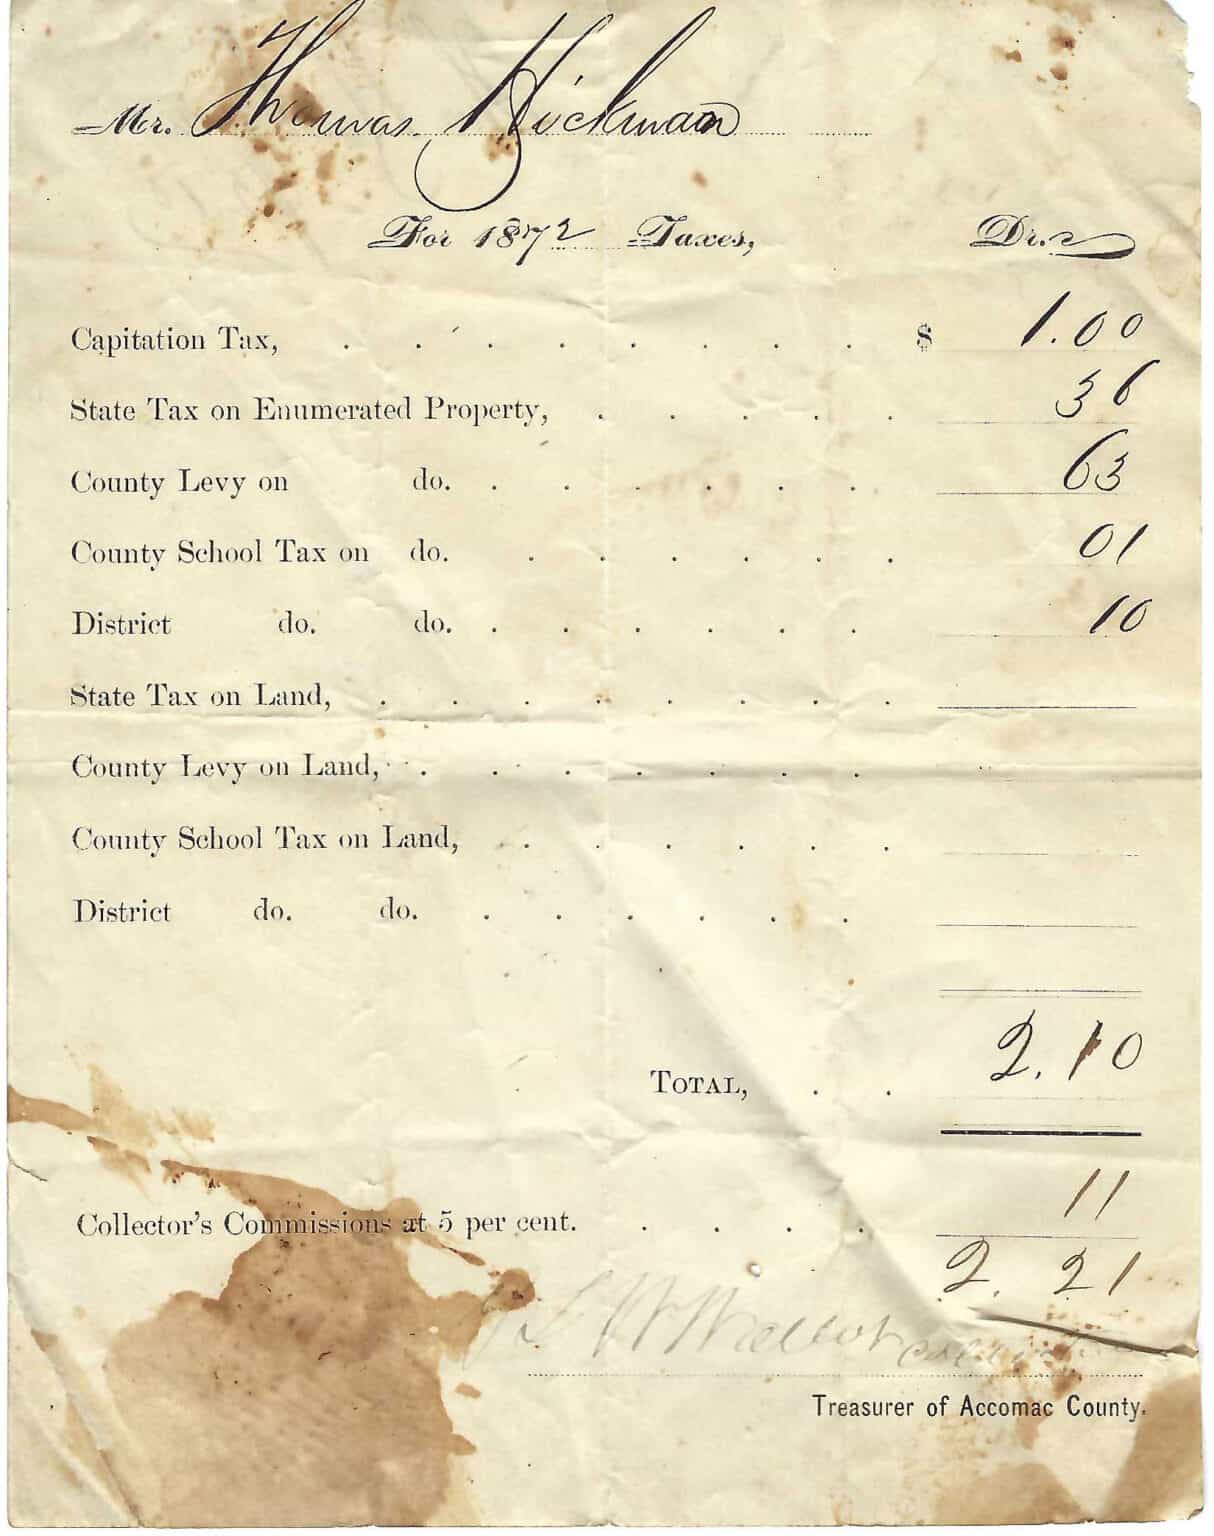 Mr. Thomas Hickman
For 1872 Taxes, Dr.
Capitation Tax, . . . . . . . . $ 1.00
State Tax on Enumerated Property, . . . . . 36
County Levy on do. . . . . . . 63
County School Tax on do. . . . . . . 01
District do. do. . . . . . . 10
State Tax on Land, . . . . . . . .
County Levy on Land, . . . . . . .
County School Tax on Land, . . . . . .
District do. do. . . . . . .
2.10
TOTAL, . .
11
Collector's Commissions at 5 per cent. . . . .
2.21
Treasurer of Accomac County.